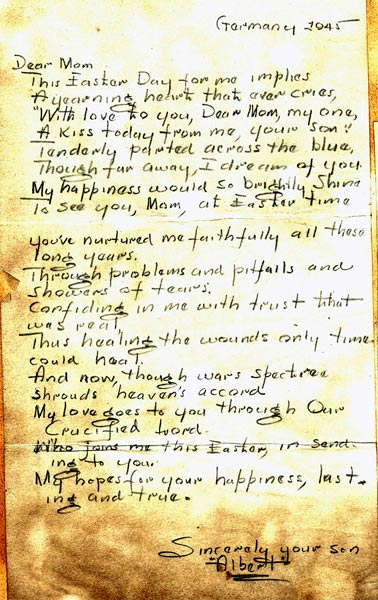 Germany 1945
Dear Mom
This Easter Day for me implies
A yearning heart that ever cries,
"With love to you, Dear Mom, my one,
A Kiss today from me, your son."
Tenderly parted across the blue,
Though far away, I dream of you.
My happiness would so brightly Shine
To see you, Mom, at Easter time
you've nurtured me faithfully all these
long years.
Through problems and pitfalls and
showers of tears.
Confiding in me with trust that
was real
Thus healing the wounds only time
could heal.
And now, though wars spectree
shrouds heaven's accord
My love goes to you through Our
Crucified Lord.
Who joins me this Easter, in send-
ing to you
My hopes for your happiness, last-
ing and true.
Sincerely your son
"Albert"